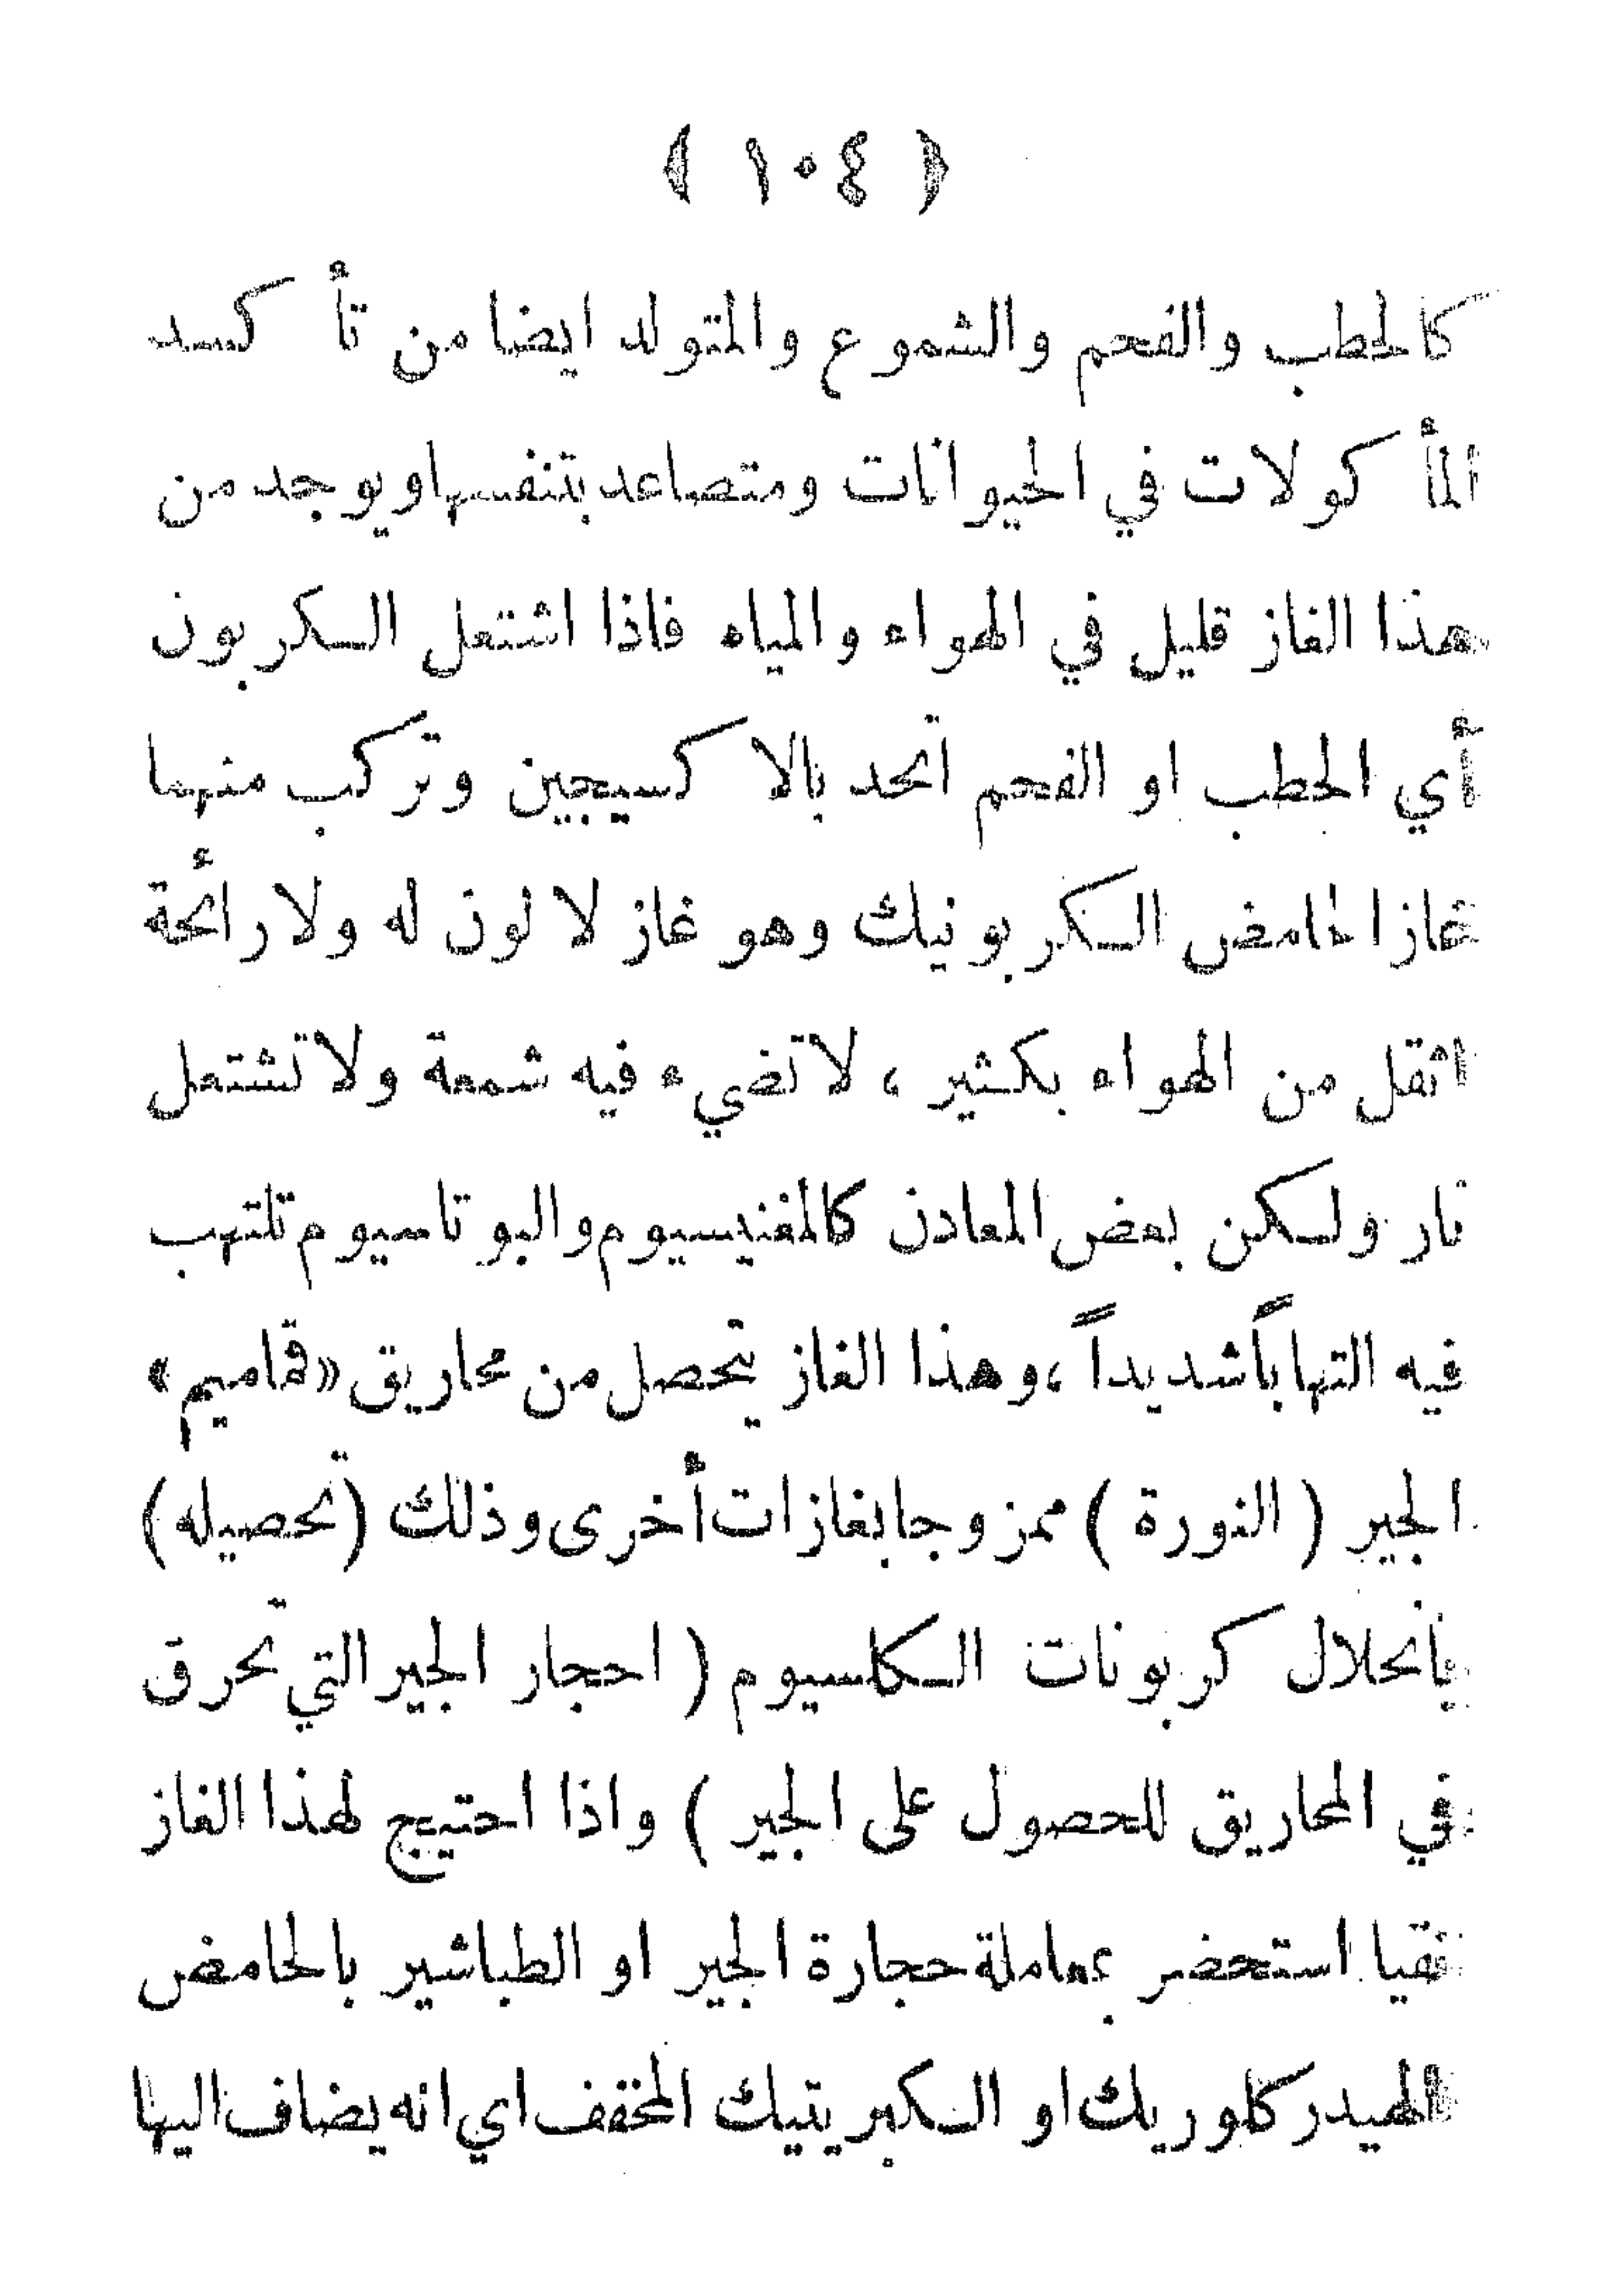 ﴿ ١٠٤ ﴾
كالحطب والفحم والشموع والمتولد ايضا من تأكسد
المأكولات في الحيوانات ومتصاعد بتنفسها ويوجد من
هذا الغاز قليل في الهواء والمياه فاذا اشتعل الكربون
أي الحطب او الفحم اتحد بالاكسيجين وتركب منهما
غاز الحامض الكربونيك وهو غاز لا لون له ولا رائحة
اثقل من الهواء بكثير ، لا تضيء فيه شمعة ولا تشتعل
نار ولكن بعض المعادن كالمغنيسيوم والبوتاسيوم تلتهب
فيه التهاباً شديداً ، وهذا الغاز يتحصل من محاريق «قماميم»
الجير ( النورة ) ممزوجا بغازات أخرى وذلك (تحصيله)
بانحلال كربونات الكلسيوم ( احجار الجير التي تحرق
في المحاريق للحصول على الجير ) واذا احتيج لهذا الغاز
نقيا استحضر بمعاملة حجارة الجير او الطباشير بالحامض
الهيدركلوريك او الكبريتيك المخفف اي انه يضاف اليها